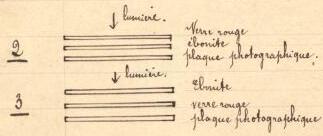 lumière.
Verre rouge
2 ébonite
plaque photographique.
lumière.
Ebonite
3 verre rouge
plaque photographique